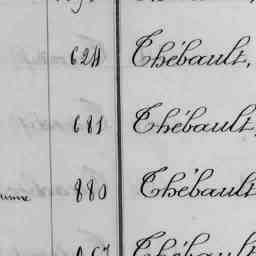 624 Thébault,
681 Thébault,
880 Thébault
Thébault